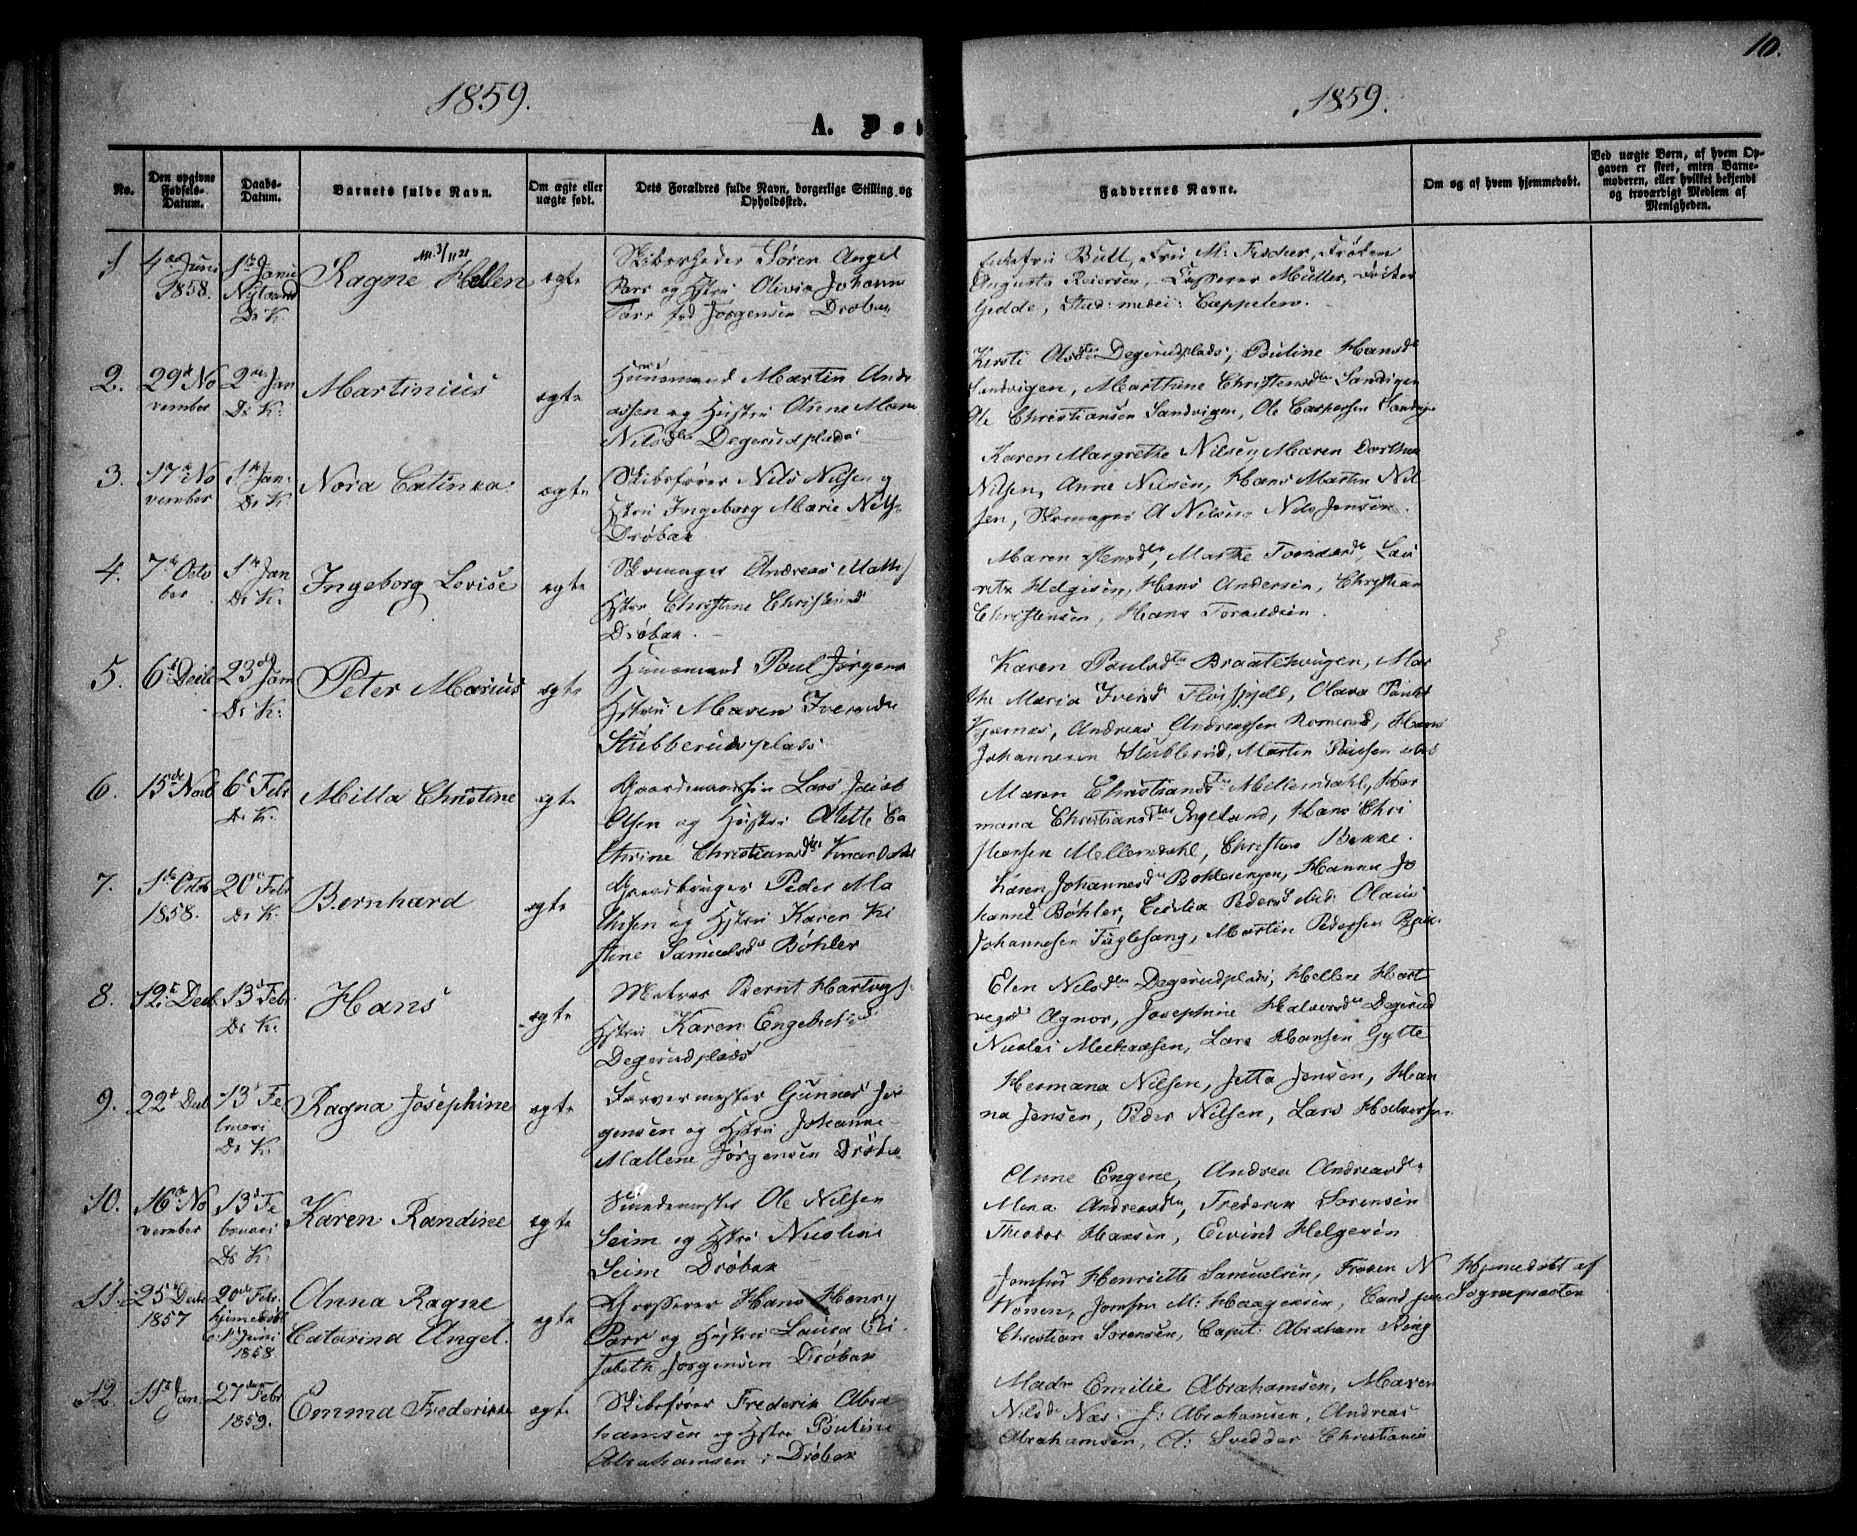 10.
1859.
1859.
A. Døb
No.
Den opgivne Fødsels-Datum.
Daabs-Datum.
Barnets fulde Navn.
Om ægte eller uægte født.
Dets Forældres fulde Navn, borgerlige Stilling og Opholdssted.
Faddernes Navne.
Om og af hvem hjemmedøbt.
Ved uægte Børn, af hvem Opgaven er skeet, enten Barnemoderen, eller hvilket bekjendt og troværdigt Medlem af Menigheden.
1
4de Juni
1858.
1ste Janu
Nytaars
Dr K.
Ragne Hellen
ægte
Skibsrheder Søren Angel
Parr og Hstru Olivia Johann
Parr fød Jørgensen Drøbak
Bull, Fru M: Fischer, Frøken
Augusta Reiersen, Müller, Doctor
Gedde, Stud: medci: Cappelen.
2.
29de No
vember
2den Jan
Dr K:
Martinius
ægte
Huusmand Martin Andr
assen og Hustru Anne Marie
Nilsdtr Degerudplads
Kirsti Olsdtr Degerudplads, Pauline Hansdtr
Sandvigen, Marthine Christensdtr Sandvigen
Ole Christiansen Sandvigen, Ole Caspersen Sandvig
3.
17de No
vember
1ste Jan.
Dr K:
Nora Catinka.
ægte
Skibsfører Nils Nilsen og
Hstru Ingeborg Marie Nils
Drøbak
Karen Margrethe Nilsen, Maren Dorthea
Nilsen, Anne Nilsen, Hans Martin Nil
sen, Skomager A Nilsen, Nils Jensen.
4.
7de Octo
ber
1ste Jan
Dr K:
Ingeborg Lovise
ægte
Skomager Andreas Math
Hstru Christine Christensd
Drøbak.
Maren Hansdtr, Marthe Torvaldsdtr Lau
ritz Helgesen, Hans Andersen, Christian
Christensen, Hans Torvaldsen.
5.
6te Decbr
23de Jan
Dr K:
Peter Marius
ægte
Huusmand Paul Jørgens
Hstru Maren Iversdtr
Stubberudsplads
Karen Paulsdtr Braatehougen, Mar
the Maria Iversd Fløisfjeld, Olava
Kjærnes, Andreas Andreassen Romerud, Hans
Johannesen Stubberud, Martin Paulsen
6.
15de Novb
6te Febr
Dr K:
Milla Christine
ægte
Gaardmandssøn Lars Jacob
Olsen og Hustru Alette Ca
thrine Christiansdtr
Maren Christiansdtr Mellemdahl, Her
mana Christiansdtr Engelund, Hans Chri
stiansen Mellemdahl, Christian Bekke.
7.
1ste Octbr
1858.
20de Febr
Dr K.
Bernhard
ægte
Gaardbruger Peder Ma
thisen og Hstru Karen Ki
stine Samuelsdtr Bøhler
Karen Johannesdtr Bohlesengen, Hanna Jo
hanne Bøhler, Cecilia Pedersd Olaus
Johannesen Fuglesang, Martin Pedersen
8.
12te Decb.
13de Febr.
Dr K:
Hans
ægte
Matros Bernt Hartvigs
Hstru Karen Engebretsd
Degerudplads
Elen Nilsdtr Degerudplads, Hellene Hart
vigsd Agnor, Josephine Halvorsdtr Degerud
Nicolai Michaelsen, Lars Hansen Gylte
9.
22de Decb
13de Fe
bruari
Dr K.
Ragna Josephine
ægte
Farvermester Gunnar Jør
gensen og Hstru Johanne
Mallene Jørgensen Drøbak
Hermana Nilsen, Jetta Jensen, Han
na Jensen, Peder Nilsen, Lars Halvorsen
10.
16de No
vember
13de Fe
bruari
Dr K.
Karen Randine
ægte
Smedemester Ole Nilsen
Seim og Hstru Nicoline
Seim Drøbak
Anne Engene, Andrea Andreasdtr
Mina Andreasdtr, Frederik Sørensen
Theodor Hansen, Eivind Helgesen
11.
25de Decbr
1857
20de Febr.
hjemmedøbt
6te Juni
1858
Anna Ragne
Catarina Angel.
ægte
Grosserer Hans Henry
Parr og Hustru Laura Eli
sabeth Jørgensen Drøbak
Jomfru Henriette Samuelsen, Frøken N
Wonen, Jomfru M: Haagensen, Cand
Christian Sørensen, Capit: Abraham Ring
Hjemedøbt af
Sognepræsten
12.
11te Jan.
27de Febr
1859.
Emma Frederikke
ægte
Skibsfører Frederik Abra
hamsen og Hstru Pauline
Abrahamsen i Drøbak
Madm Emilie Abrahamsen, Maren
Nilsd Næs, J: Abrahamsen, Andreas
Abrahamsen, A: Svedder Christiania